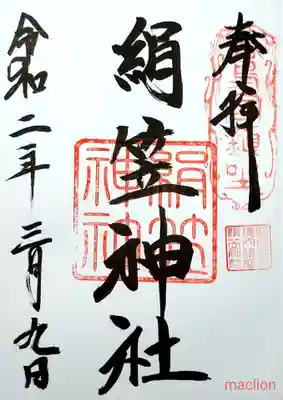 奉拝
絹笠神社
絹笠神社
令和二年三月九日
maclion